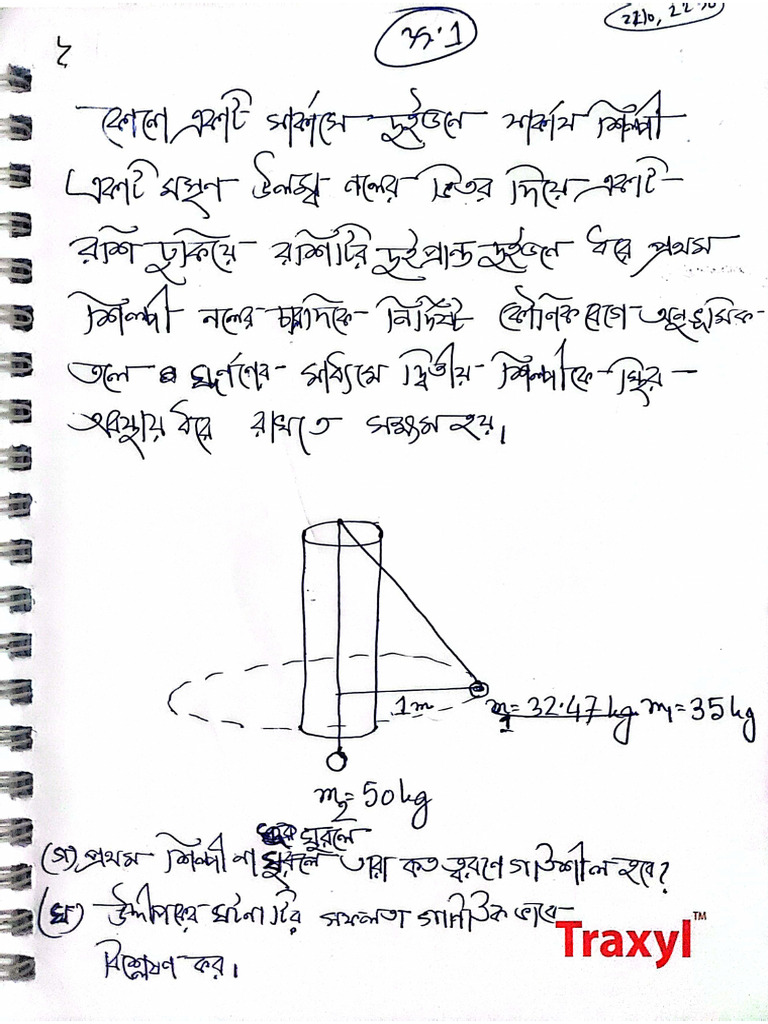 ২
ফ.1
কোনো একটি সার্কাসে দুইজন সার্কাস শিল্পী
একটি মসৃণ উলম্ব নলের ভিতর দিয়ে একটি
রশি ঢুকিয়ে রশিটির দুইপ্রান্ত দুইজনে ধরে প্রথম
শিল্পী নলের চারদিকে নির্দিষ্ট কৌনিক বেগে অনুভূমিক
তলে ঘূর্ণণের মাধ্যমে দ্বিতীয় শিল্পীকে স্থির
অবস্থায় ধরে রাখতে সক্ষম হয়।
1m
m₁= 32.47 kg m₁= 35 kg
m₂= 50 kg
ঘুরলে
(গ) প্রথম শিল্পী না ঘুরলে তারা কত ত্বরণে গতিশীল হবে?
(ঘ) উদ্দীপকের ঘটনাটির সফলতা গাণিতিক ভাবে
বিশ্লেষণ কর।
Traxyl™